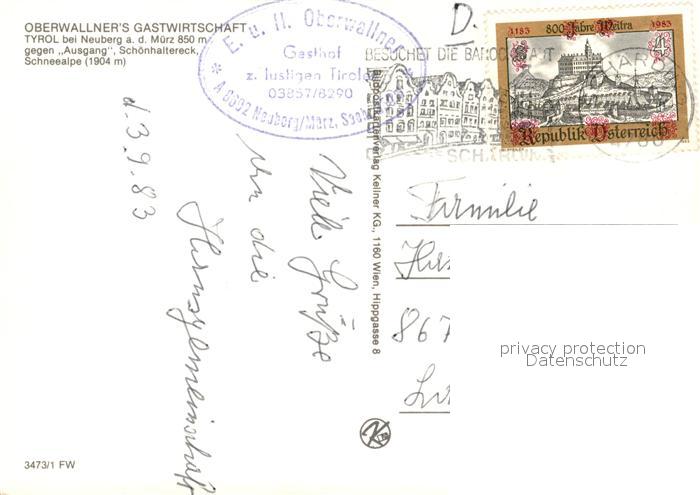 OBERWALLNER'S GASTWIRTSCHAFT
TYROL bei Neuberg a. d. Mürz 850 m
gegen „Ausgang", Schönhaltereck,
Schneealpe (1904 m)
E. u. H. Oberwallner
Gasthof
z. lustigen Tiroler
03857/8290
A 8692 Neuberg/Mürz,
D.
BESUCHET DIE BAROCKSTADT
SCHÄRDING
1183 800 Jahre Weitra 1983
S 4
Republik Österreich
4780
d. 3.9.83
Viele Grüße
an die
Hausgemeinschaft
Kellner KG., 1160 Wien, Hippgasse 8
Familie
867
privacy protection
Datenschutz
3473/1 FW